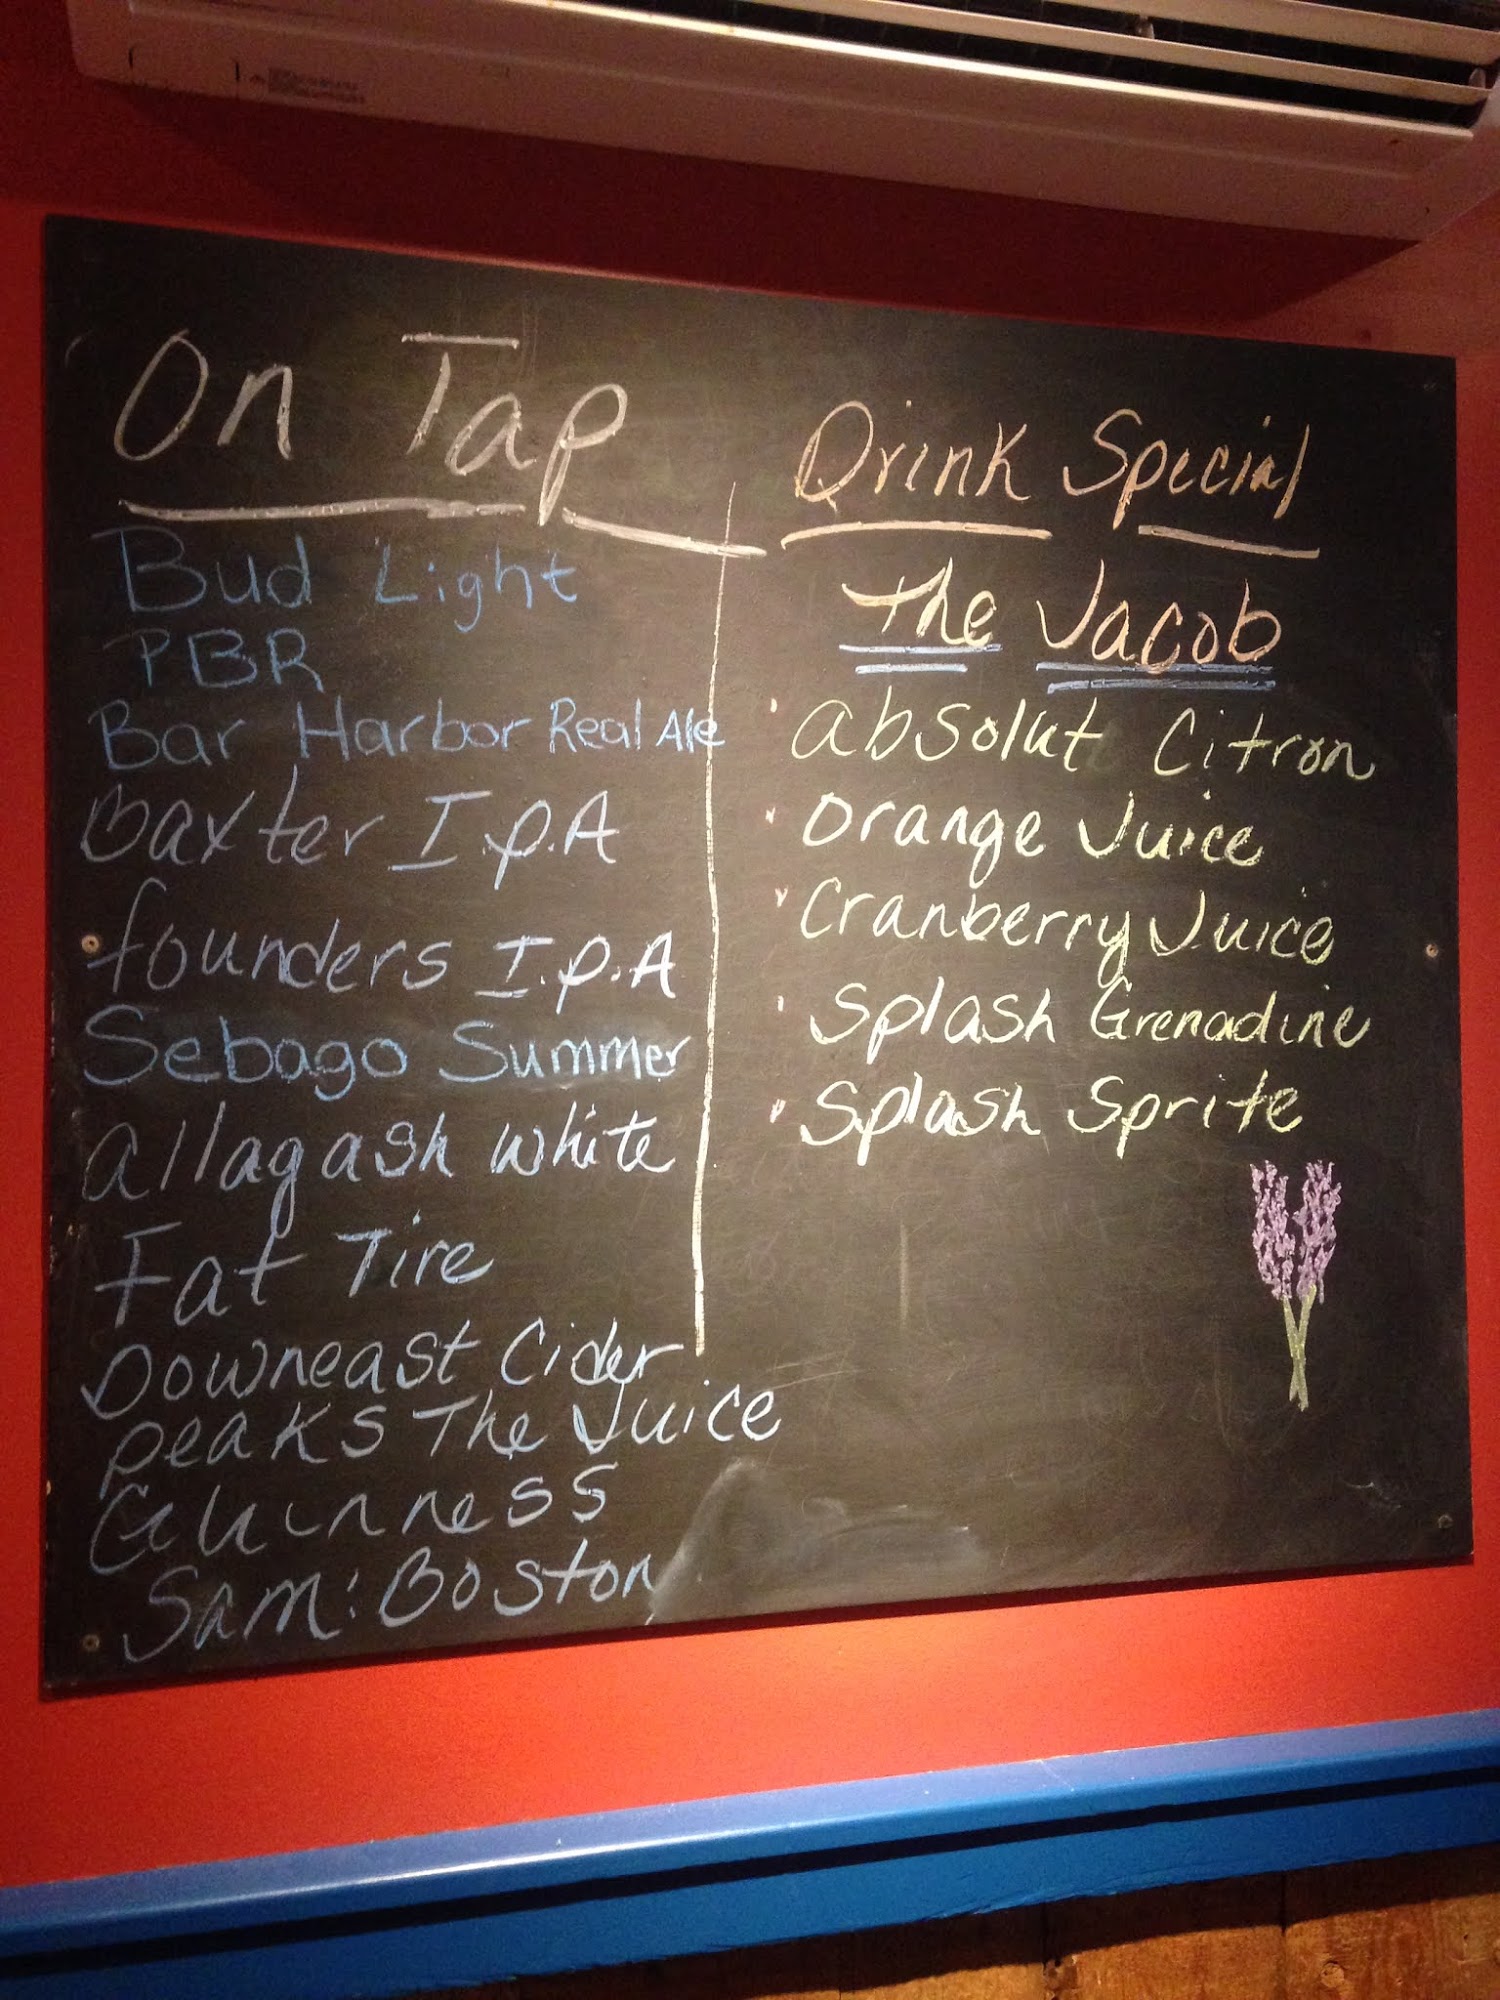 On Tap
Bud Light
PBR
Bar Harbor Real Ale
Baxter I.P.A
founders I.P.A
Sebago Summer
allagash white
Fat Tire
Downeast Cider
peaks The Juice
Guinness
Sam: Boston
Drink Special
The Jacob
absolut Citron
Orange Juice
Cranberry Juice
Splash Grenadine
Splash Sprite